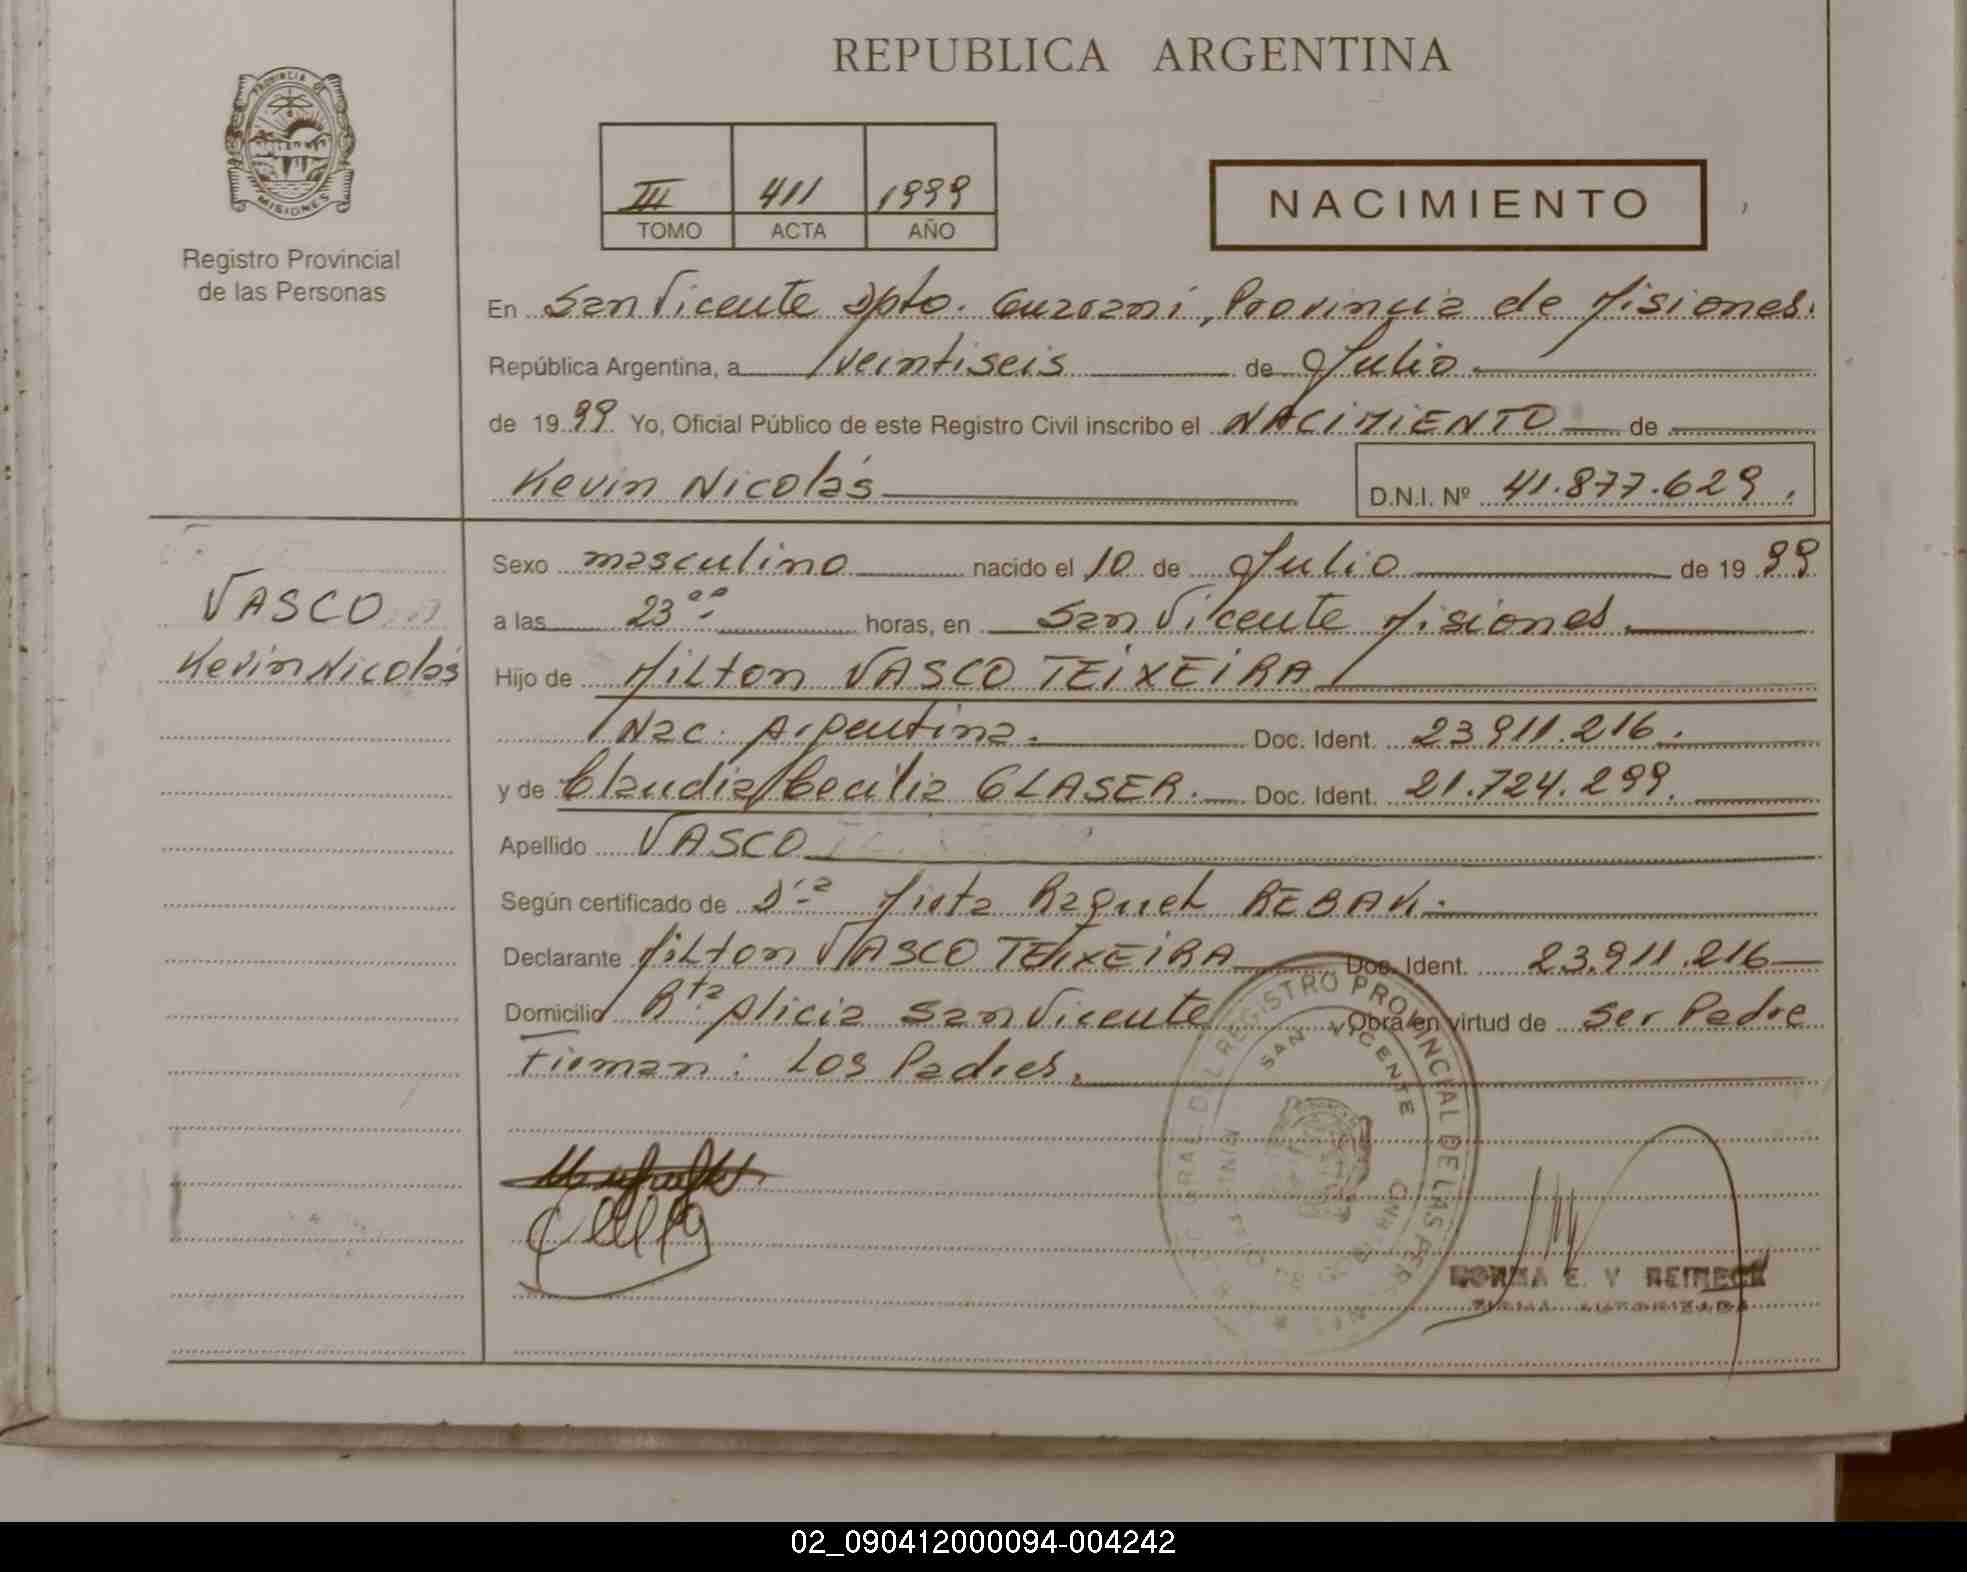 REPUBLICA ARGENTINA
PROVINCIA DE
MISIONES
Registro Provincial
de las Personas
III 411 1999
TOMO ACTA AÑO
NACIMIENTO
En San Vicente Dpto. Guaraní, Provincia de Misiones.
República Argentina, a veintiseis de Julio
de 1999 Yo, Oficial Público de este Registro Civil inscribo el NACIMIENTO de
Kevin Nicolás D.N.I. Nº 41.877.629.
VASCO
Kevin Nicolás
Sexo masculino nacido el 10 de Julio de 1999
a las 23 ºº horas, en San Vicente Misiones.
Hijo de Milton VASCO TEIXEIRA
Nac. Argentina. Doc. Ident. 23.911.216.
y de Claudia Cecilia GLASER. Doc. Ident. 21.724.299.
Apellido VASCO
Según certificado de Dra Mirta Raquel REBAK.
Declarante Milton VASCO TEIXEIRA Doc. Ident. 23.911.216
Domicilio Rta Alicia San Vicente Obra en virtud de Ser Padre
Firman: Los Padres.
GRAL DEL REGISTRO PROVINCIAL DE LAS PER
SAN VICENTE
NORMA E. V. REINECK
FIRMA AUTORIZADA
02_090412000094-004242